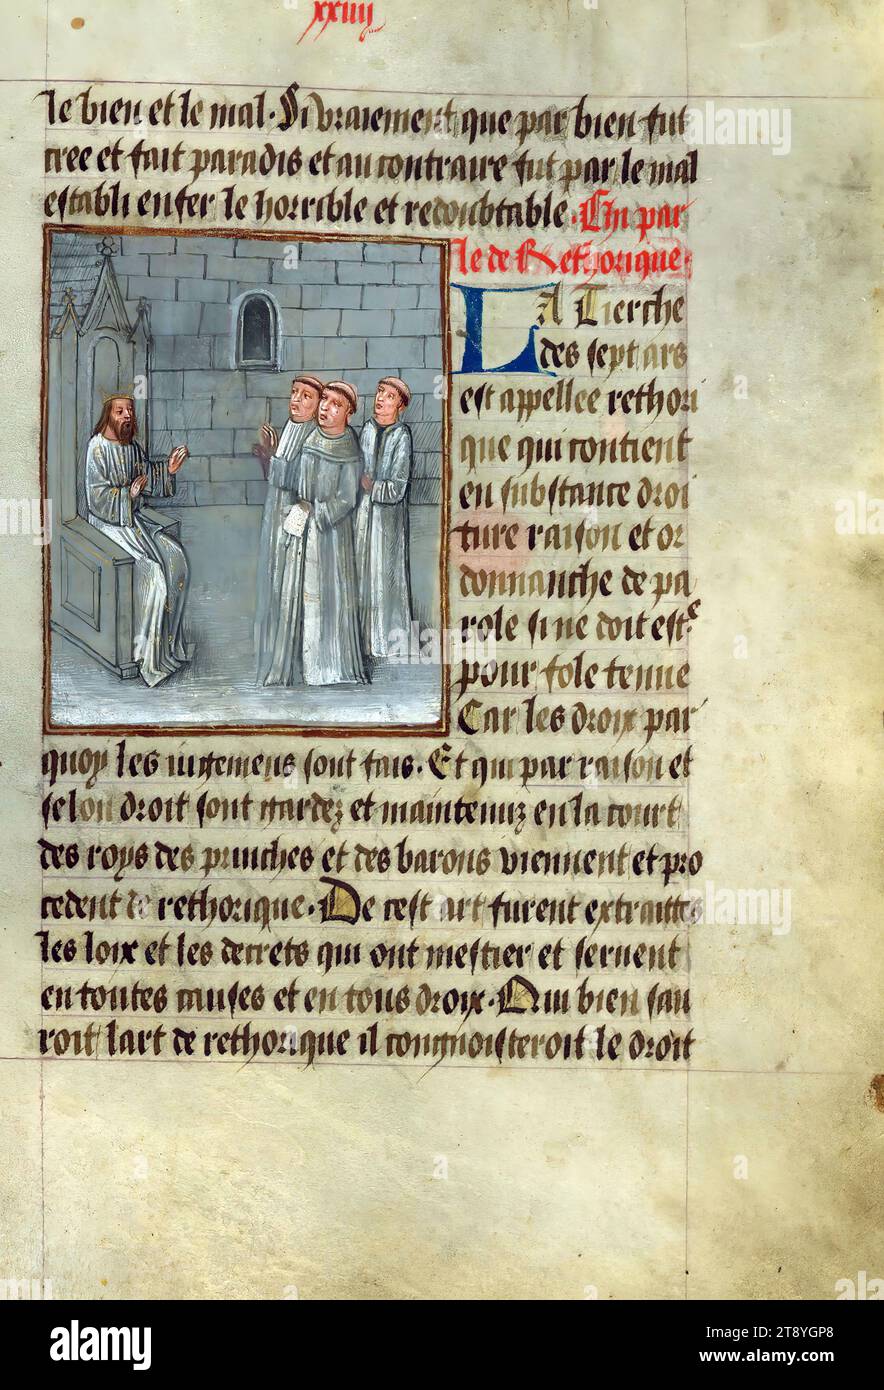 xxiiij
le bien et le mal. Si vraiement que par bien fut
cree et fait paradis et au contraire fut par le mal
establi enfer le horrible et redoubtable. Chi par
le de Rethorique.
LA Tierche
des sept ars
est appellee rethori
que qui contient
en substance droi
ture raison et or
donnanche de pa
role si ne doit estre
pour fole tenue
Car les droix par
quoy les iugemens sont fais. Et qui par raison et
selon droit sont gardez et maintenuz en la court
des roys des prinches et des barons viennent et pro
cedent de rethorique. De cest art furent extraittes
les loix et les decrets qui ont mestier et seruent
en toutes causes et en tous droix. Qui bien sau
roit lart de rethorique il congnoisteroit le droit
alamy
Image ID: 2T8YGP8
www.alamy.com